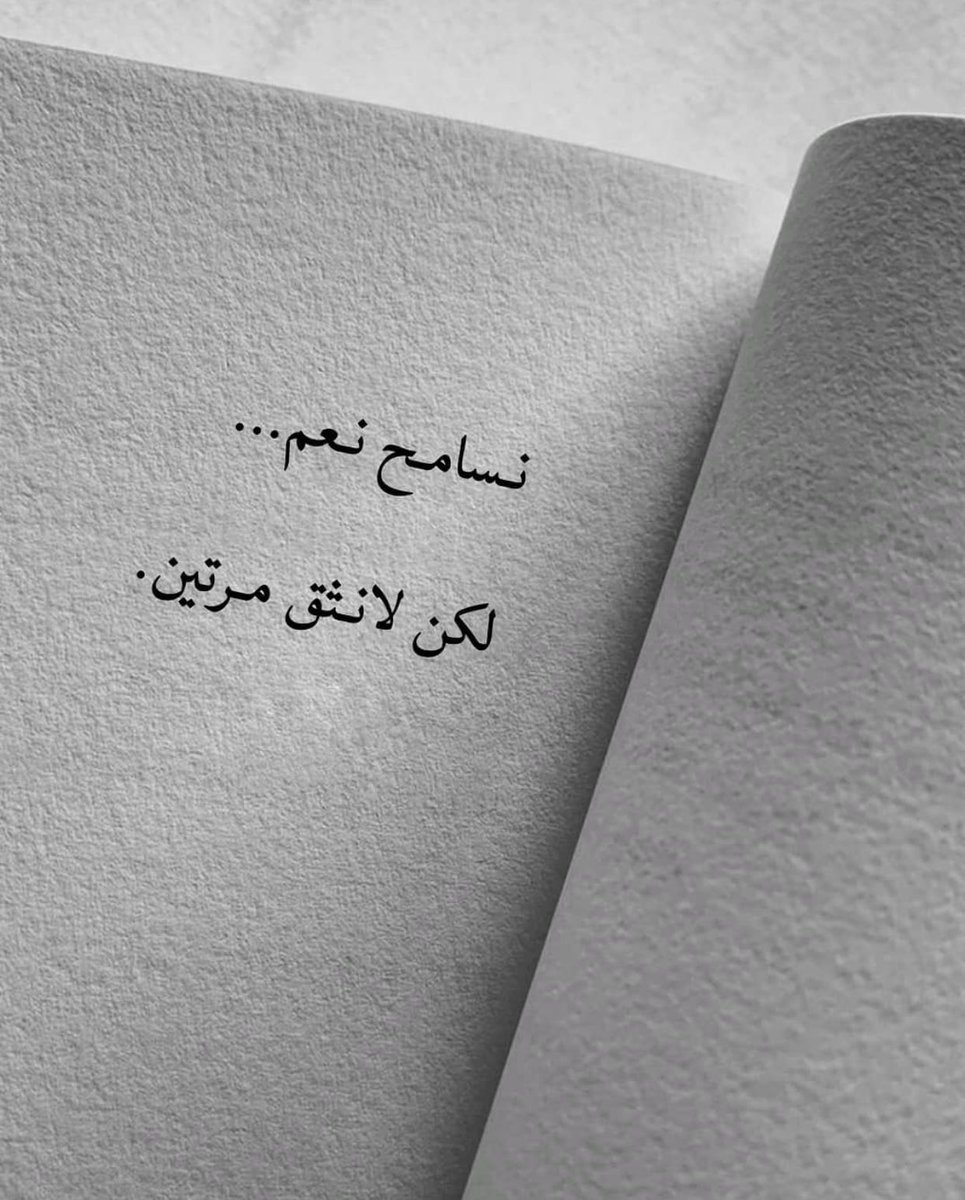 نسامح نعم...
لكن لانثق مرتين.